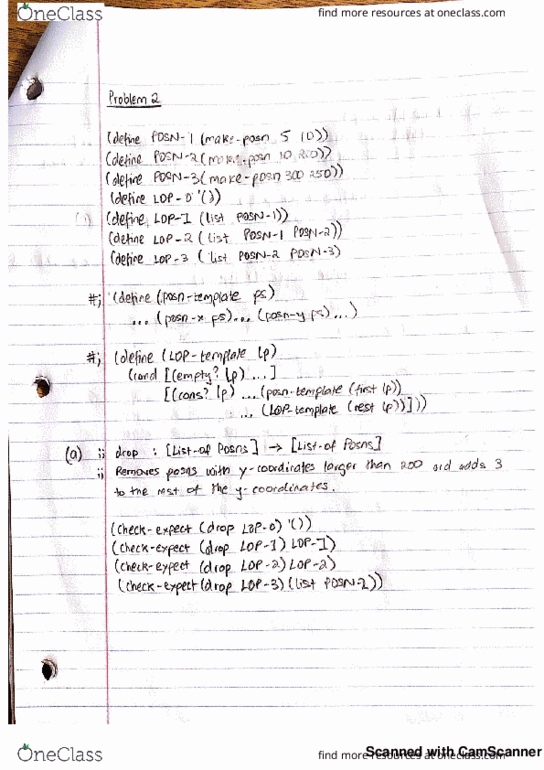 OneClass find more resources at oneclass.com
Problem 2
(define POSN-1 (make-posn 5 10))
(define POSN-2 (make-posn 10 200))
(define POSN-3 (make-posn 300 250))
(define LOP-0 '())
(define LOP-1 (list POSN-1))
(define LOP-2 (list POSN-1 POSN-2))
(define LOP-3 (list POSN-2 POSN-3)
#; (define (posn-template ps)
... (posn-x ps)... (posn-y ps)...)
#; (define (LOP-template lp)
(cond [(empty? lp) ...]
[(cons? lp) ...(posn-template (first lp))
... (LOP-template (rest lp))]))
(a) ;; drop : [List-of Posns] → [List-of Posns]
;; Removes posns with y-coordinates larger than 200 and adds 3
to the rest of the y-coordinates.
(check-expect (drop LOP-0) '())
(check-expect (drop LOP-1) LOP-1)
(check-expect (drop LOP-2) LOP-2)
(check-expect (drop LOP-3) (list POSN-2))
OneClass find more resources at oneclass.com
Scanned with CamScanner